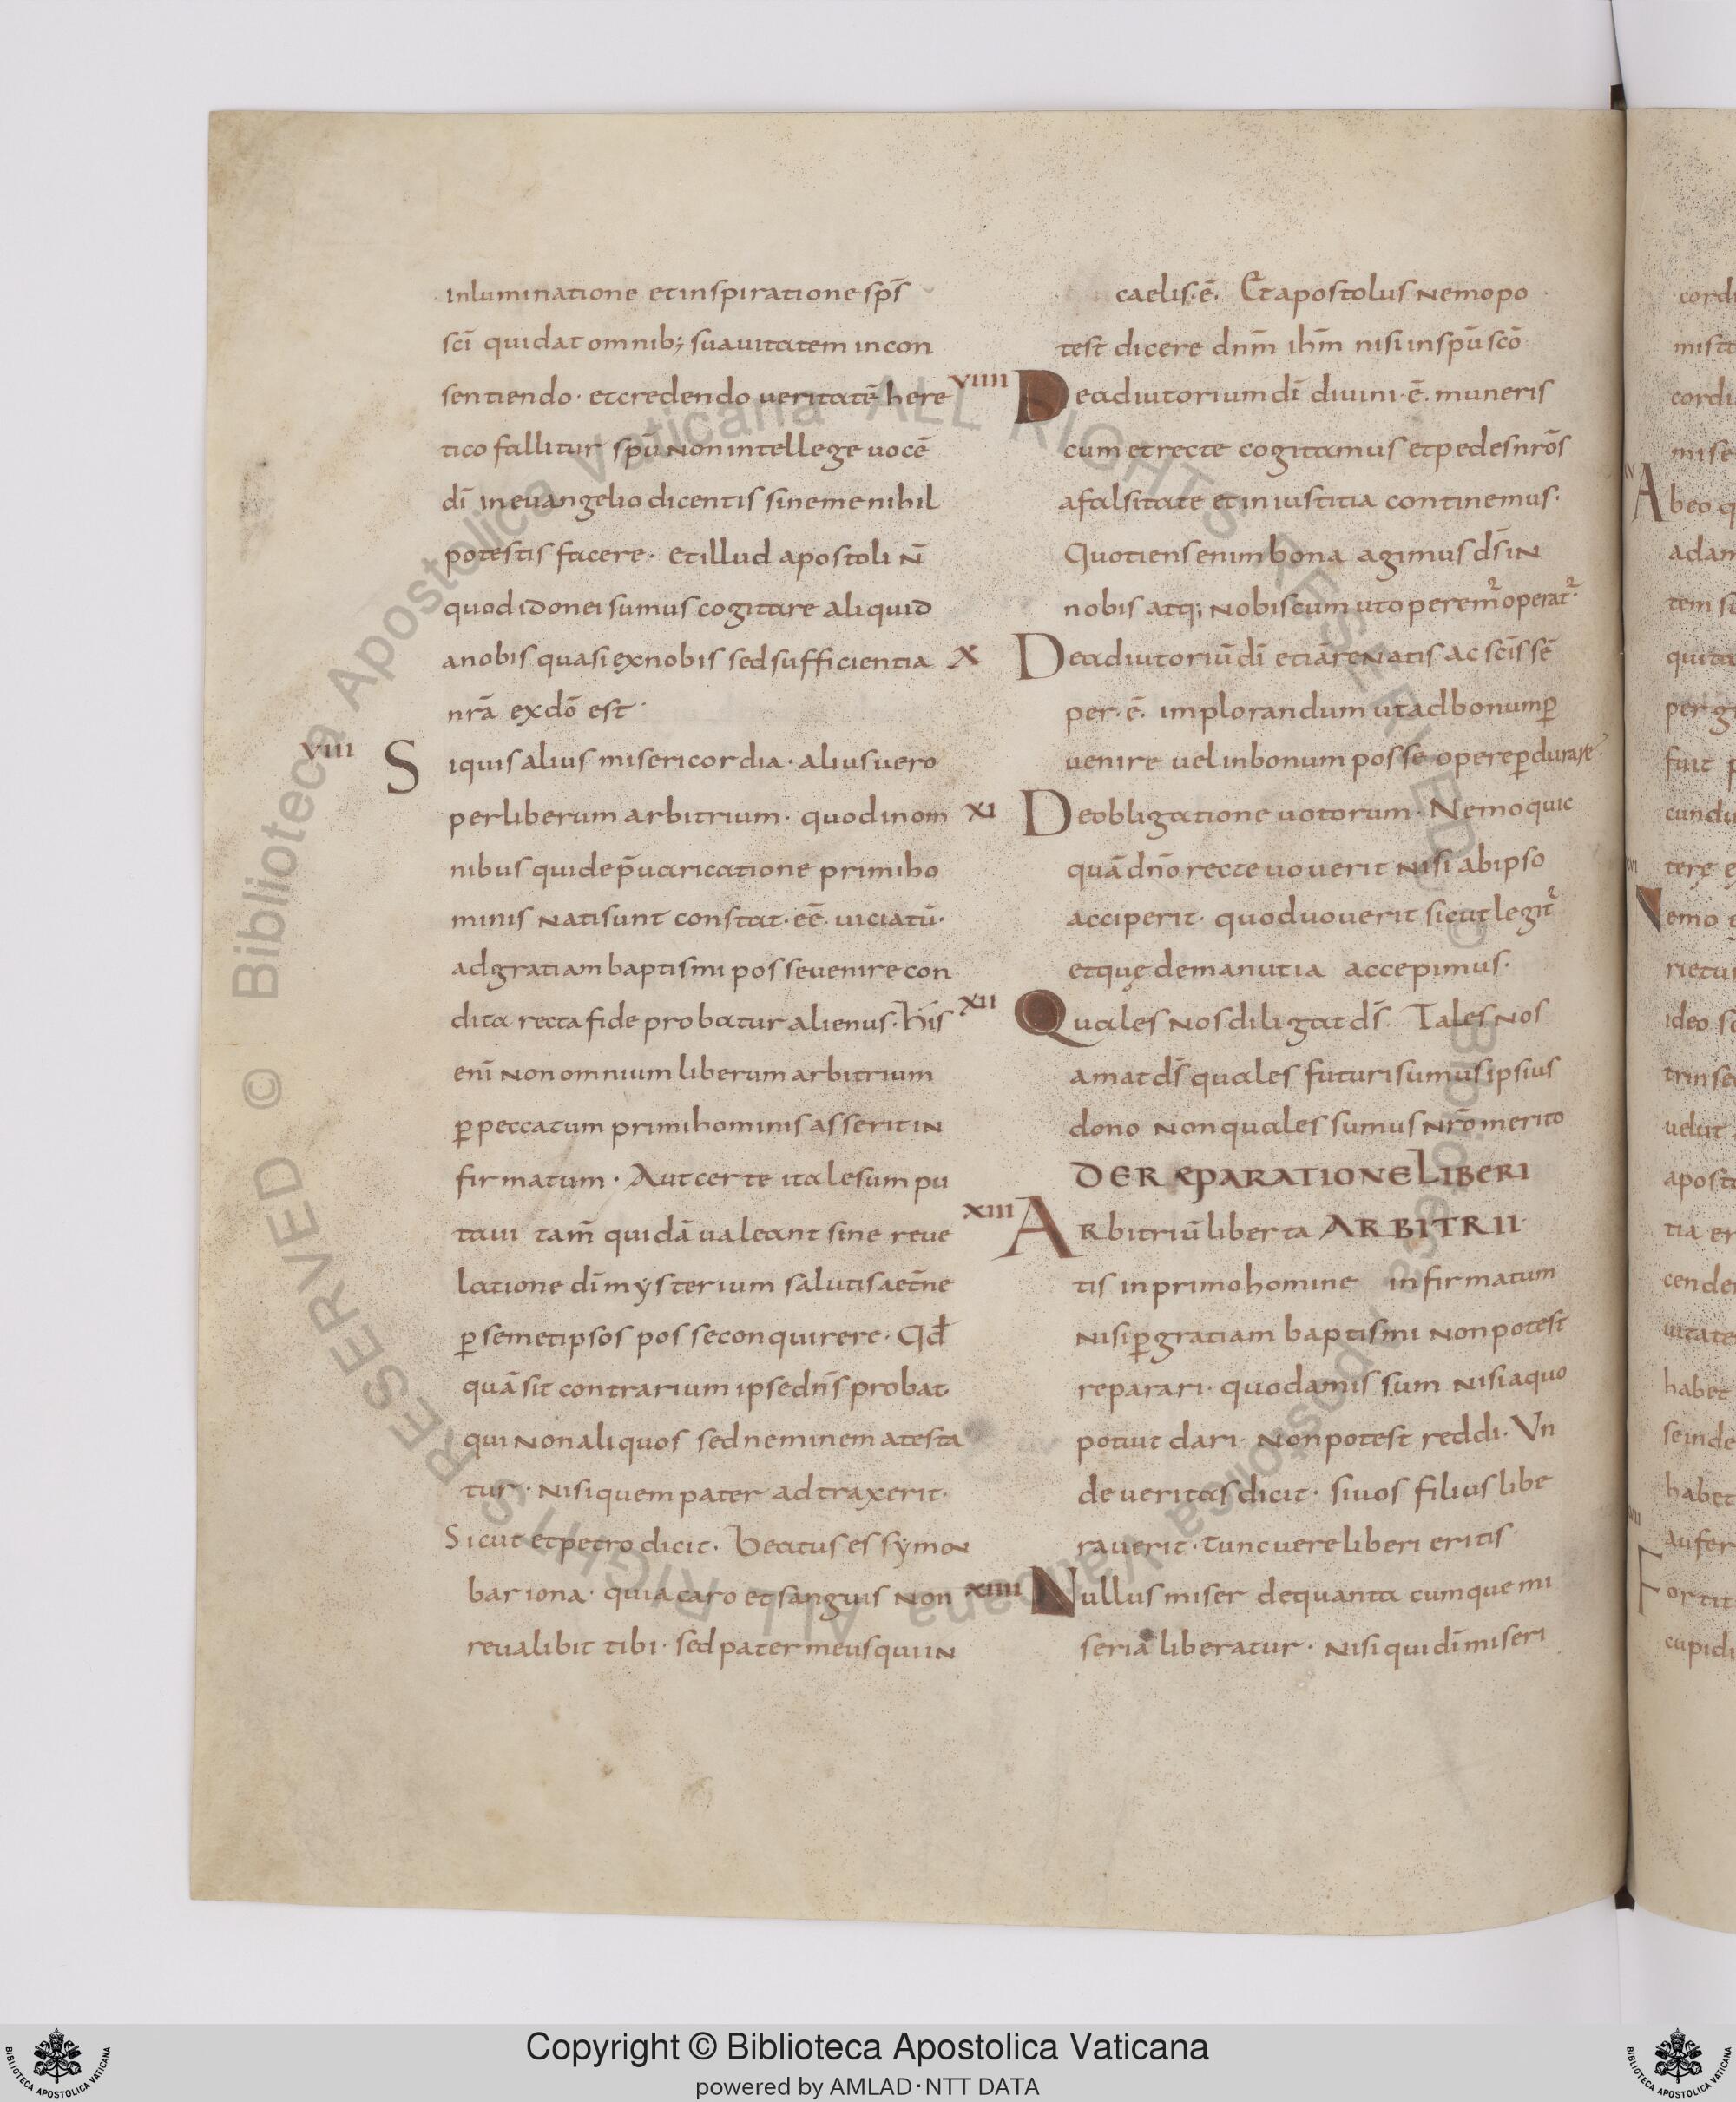 inluminatione et inspiratione sp̄s
sc̄i qui dat omnib; suauitatem in con
sentiendo · et credendo ueritatē here
tico fallitur sp̄u non intellege uocē
dī in euangelio dicentis sine me nihil
potestis facere · et illud apostoli n̄
quod idonei sumus cogitare aliquid
a nobis quasi ex nobis sed sufficientia
nr̄a ex dō est ·
VIII Si quis alius misericordia · alius uero
per liberum arbitrium · quod in om
nibus qui de p̄uaricatione primi ho
minis nati sunt constat · eē · uiciatū ·
ad gratiam baptismi posse uenire con
dita recta fide probatur alienus · his
enī non omnium liberum arbitrium
ꝑ peccatum primi hominis asserit in
firmatum · Aut certe ita lesum pu
taui tam̄ quidā ualeant sine reue
latione dī mẏsterium salutis aet̄ne
ꝑ semetipsos posse conquirere · Qd̄
quā sit contrarium ipse dn̄s probat ·
qui non aliquos sed neminem a testa
tur · nisi quem pater adtraxerit ·
Sicut et petro dicit · beatus es sẏmon
bariona · quia caro et sanguis non
reualibit tibi · sed pater meus qui in
caelis · ē · Et apostolus nemo po
test dicere dnm̄ ihm̄ nisi in sp̄u scō
VIIII De adiutorium dī diuini · ē · muneris
cum et recte cogitamus et pedes nrōs
a falsitate et iniustitia continemus ·
Quotiens enim bona agimus ds̄ in
nobis atq; nobiscum ut operemur̄ operat̄ ·
X De adiutoriū dī etiā renatis ac sc̄is sē
per · ē · implorandum ut ad bonum ꝑ
uenire uel in bonum posse opere ꝑdurare ·
XI De obligatione uotorum · Nemo quic
quā dn̄o recte uouerit nisi ab ipso
acciperit · quod uouerit sicut legit̄
et quę de manu tia accepimus ·
XII Quales nos diligat ds̄ · Tales nos
amat ds̄ quales futuri sumus ipsius
dono non quales sumus nrō merito
DE REPARATIONE LIBERI
XIII Arbitriū liberta ARBITRII
tis in primo homine infirmatum
nisi ꝑ gratiam baptismi non potest
reparari · quod amissum nisi a quo
potuit dari · non potest reddi · Vn
de ueritas dicit · si uos filius libe
rauerit · tunc uere liberi eritis
XIIII Nullus miser de quantacumque mi
seria liberatur · nisi qui dī miseri
cord
cordi
mise
Abeo q
adam
tem su
quita
per gr
fuit p
cundu
terę e
Nemo
rietus
ideo
trinse
uelut
aposto
tia er
cende
uitate
habet
se inde
habet
aufer
Fortit
cupidi
© Biblioteca Apostolica Vaticana ALL RIGHTS RESERVED
Copyright © Biblioteca Apostolica Vaticana
powered by AMLAD·NTT DATA
BIBLIOTECA APOSTOLICA VATICANA
BIBLIOTECA APOSTOLICA VATICANA